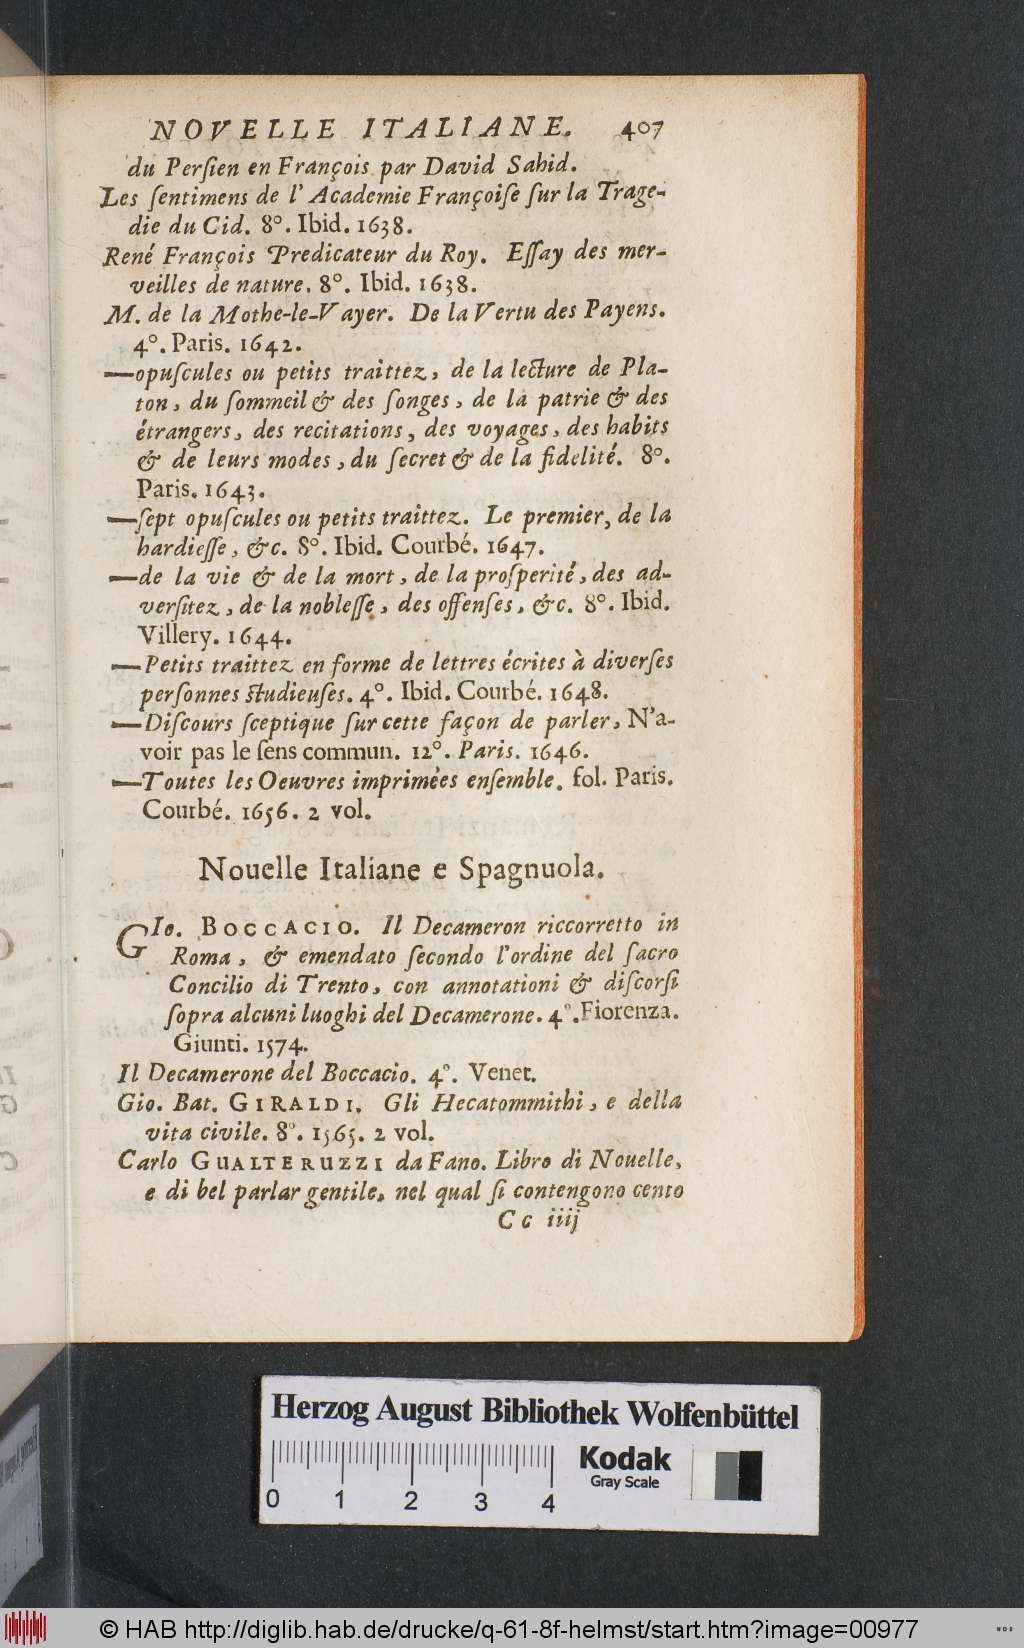 NOVELLE ITALIANE. 407
du Perſien en François par David Sahid.
Les ſentimens de l' Academie Françoiſe ſur la Trage-
die du Cid. 8°. Ibid. 1638.
René François Predicateur du Roy. Eſſay des mer-
veilles de nature. 8°. Ibid. 1638.
M. de la Mothe-le-Vayer. De la Vertu des Payens.
4°. Paris. 1642.
—opuſcules ou petits traittez, de la lecture de Pla-
ton, du ſommeil & des ſonges, de la patrie & des
étrangers, des recitations, des voyages, des habits
& de leurs modes, du ſecret & de la fidelité. 8°.
Paris. 1643.
—ſept opuſcules ou petits traittez. Le premier, de la
hardieſſe, &c. 8°. Ibid. Courbé. 1647.
—de la vie & de la mort, de la proſperité, des ad-
verſitez, de la nobleſſe, des offenſes, &c. 8°. Ibid.
Villery. 1644.
—Petits traittez en forme de lettres écrites à diverſes
perſonnes ſtudieuſes. 4°. Ibid. Courbé. 1648.
—Diſcours ſceptique ſur cette façon de parler, N'a-
voir pas le ſens commun. 12°. Paris. 1646.
—Toutes les Oeuvres imprimèes enſemble. fol. Paris.
Courbé. 1656. 2 vol.
Nouelle Italiane e Spagnuola.
GIo. BOCCACIO. Il Decameron riccorretto in
Roma, & emendato ſecondo l'ordine del ſacro
Concilio di Trento, con annotationi & diſcorſi
ſopra alcuni luoghi del Decamerone. 4°. Fiorenza.
Giunti. 1574.
Il Decamerone del Boccacio. 4°. Venet.
Gio. Bat. GIRALDI. Gli Hecatommithi, e della
vita civile. 8°. 1565. 2 vol.
Carlo GUALTERUZZI da Fano. Libro di Nouelle,
e di bel parlar gentile, nel qual ſi contengono cento
Cc iiij
Herzog August Bibliothek Wolfenbüttel
Kodak
Gray Scale
0 1 2 3 4
© HAB http://diglib.hab.de/drucke/q-61-8f-helmst/start.htm?image=00977